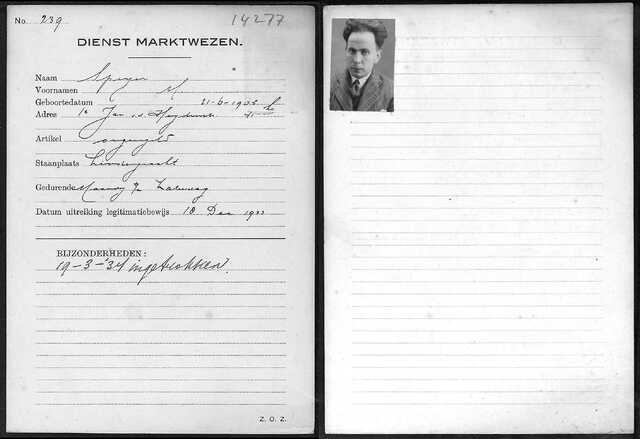 No. 239 14277
DIENST MARKTWEZEN.
Naam Speyer
Voornamen
Geboortedatum 21-6-1905
Adres 1e Jan v.d. Heydenstr.
Artikel ongeregeld
Staanplaats Lindengracht
Gedurende Maandag Zaterdag
Datum uitreiking legitimatiebewijs 18 Dec 1933
BIJZONDERHEDEN:
19-3-'34 ingetrokken.
Z. O. Z.